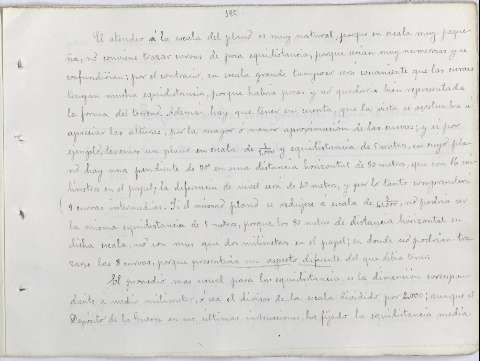 185
El atender á la escala del plano es muy natural, porque en escala muy peque-
ña, no conviene trazar curvas de poca equidistancia, porque serian muy numerosas y se
confundirian; por el contrario, en escala grande tampoco es conveniente que las curvas
tengan mucha equidistancia, porque habria pocas y no quedaria bien representada
la forma del terreno. Además, hay que tener en cuenta, que la vista se acostumbra á
apreciar las alturas, por la mayor o menor aproximacion de las curvas; y si por
ejemplo, tenemos un plano en escala de y equidistancia de 5 metros, en cuyo pla-
no hay una pendiente de en una distancia horizontal de 80 metros, que son 16 cen-
tímetros en el papel; la diferencia de nivel será de 40 metros, y por lo tanto comprenderá
8 curvas intermedias. Si el mismo plano se redujese á escala de no podria ser
la misma equidistancia de 5 metros, porque los 80 metros de distancia horizontal en
dicha escala, no son mas que dos milímetros en el papel; en donde no podrian tra-
zarse las 8 curvas, porque presentaria un aspecto diferente del que debia tener.
El promedio mas usual para las equidistancias, es la dimension correspon-
diente a medio milímetro, ó sea el divisor de la escala dividido por 2.000; aunque el
Depósito de la Guerra en sus últimas instrucciones, ha fijado la equidistancia media